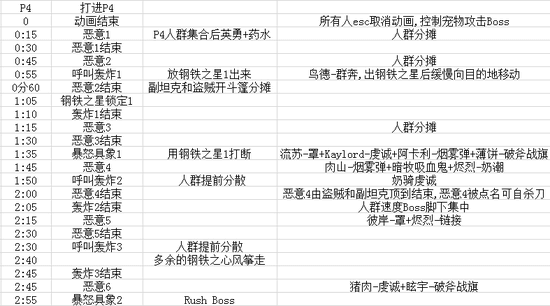 P4 打进P4
0 动画结束 所有人esc取消动画,控制宠物攻击Boss
0:15 恶意1 P4人群集合后英勇+药水 人群分摊
0:30 恶意1结束
0:45 恶意2 人群分摊
0:55 呼叫轰炸1 放钢铁之星1出来 鸟德-群奔,出钢铁之星后缓慢向目的地移动
0分60 恶意2结束 副坦克和盗贼开斗篷分摊
1:05 钢铁之星锁定1
1:10 轰炸1结束
1:15 恶意3 人群分摊
1:30 恶意3结束
1:35 暴怒具象1 用钢铁之星1打断 流苏-罩+Kaylord-虔诚+阿卡利-烟雾弹+薄饼-破斧战旗
1:45 恶意4 肉山-烟雾弹+暗牧吸血鬼+烬烈-奶潮
1:50 呼叫轰炸2 人群提前分散 奶骑虔诚
2:00 恶意4结束 恶意4由盗贼和副坦克顶到结束,恶意4被点名可自杀刀
2:05 轰炸2结束 人群速度Boss脚下集中
2:15 恶意5 彼岸-罩+烬烈-链接
2:30 恶意5结束
2:30 呼叫轰炸3 人群提前分散
2:40 多余的钢铁之心风筝走
2:45 轰炸3结束
2:45 恶意6 猪肉-虔诚+眩宇-破斧战旗
2:55 暴怒具象2 Rush Boss